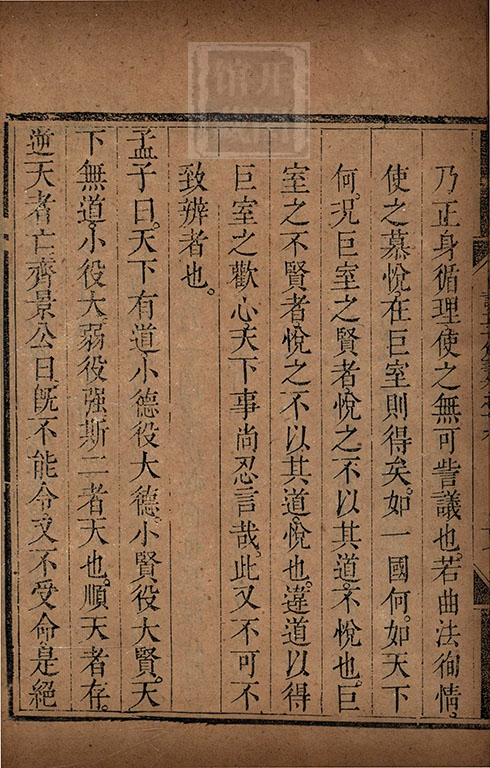 乃正身循理使之無可訾議也若曲法徇情。
使之慕悅在巨室則得矣。如一國何。如天下
何。况巨室之賢者悅之不以其道。不悅也。巨
室之不賢者悅之不以其道。悅也。違道以得
巨室之歡心。天下事尚忍言哉。此又不可不
致辨者也。
孟子曰。天下有道。小德役大德。小賢役大賢。天
下無道。小役大。弱役强。斯二者天也。順天者存。
逆天者亡。齊景公曰。旣不能令。又不受命。是絕